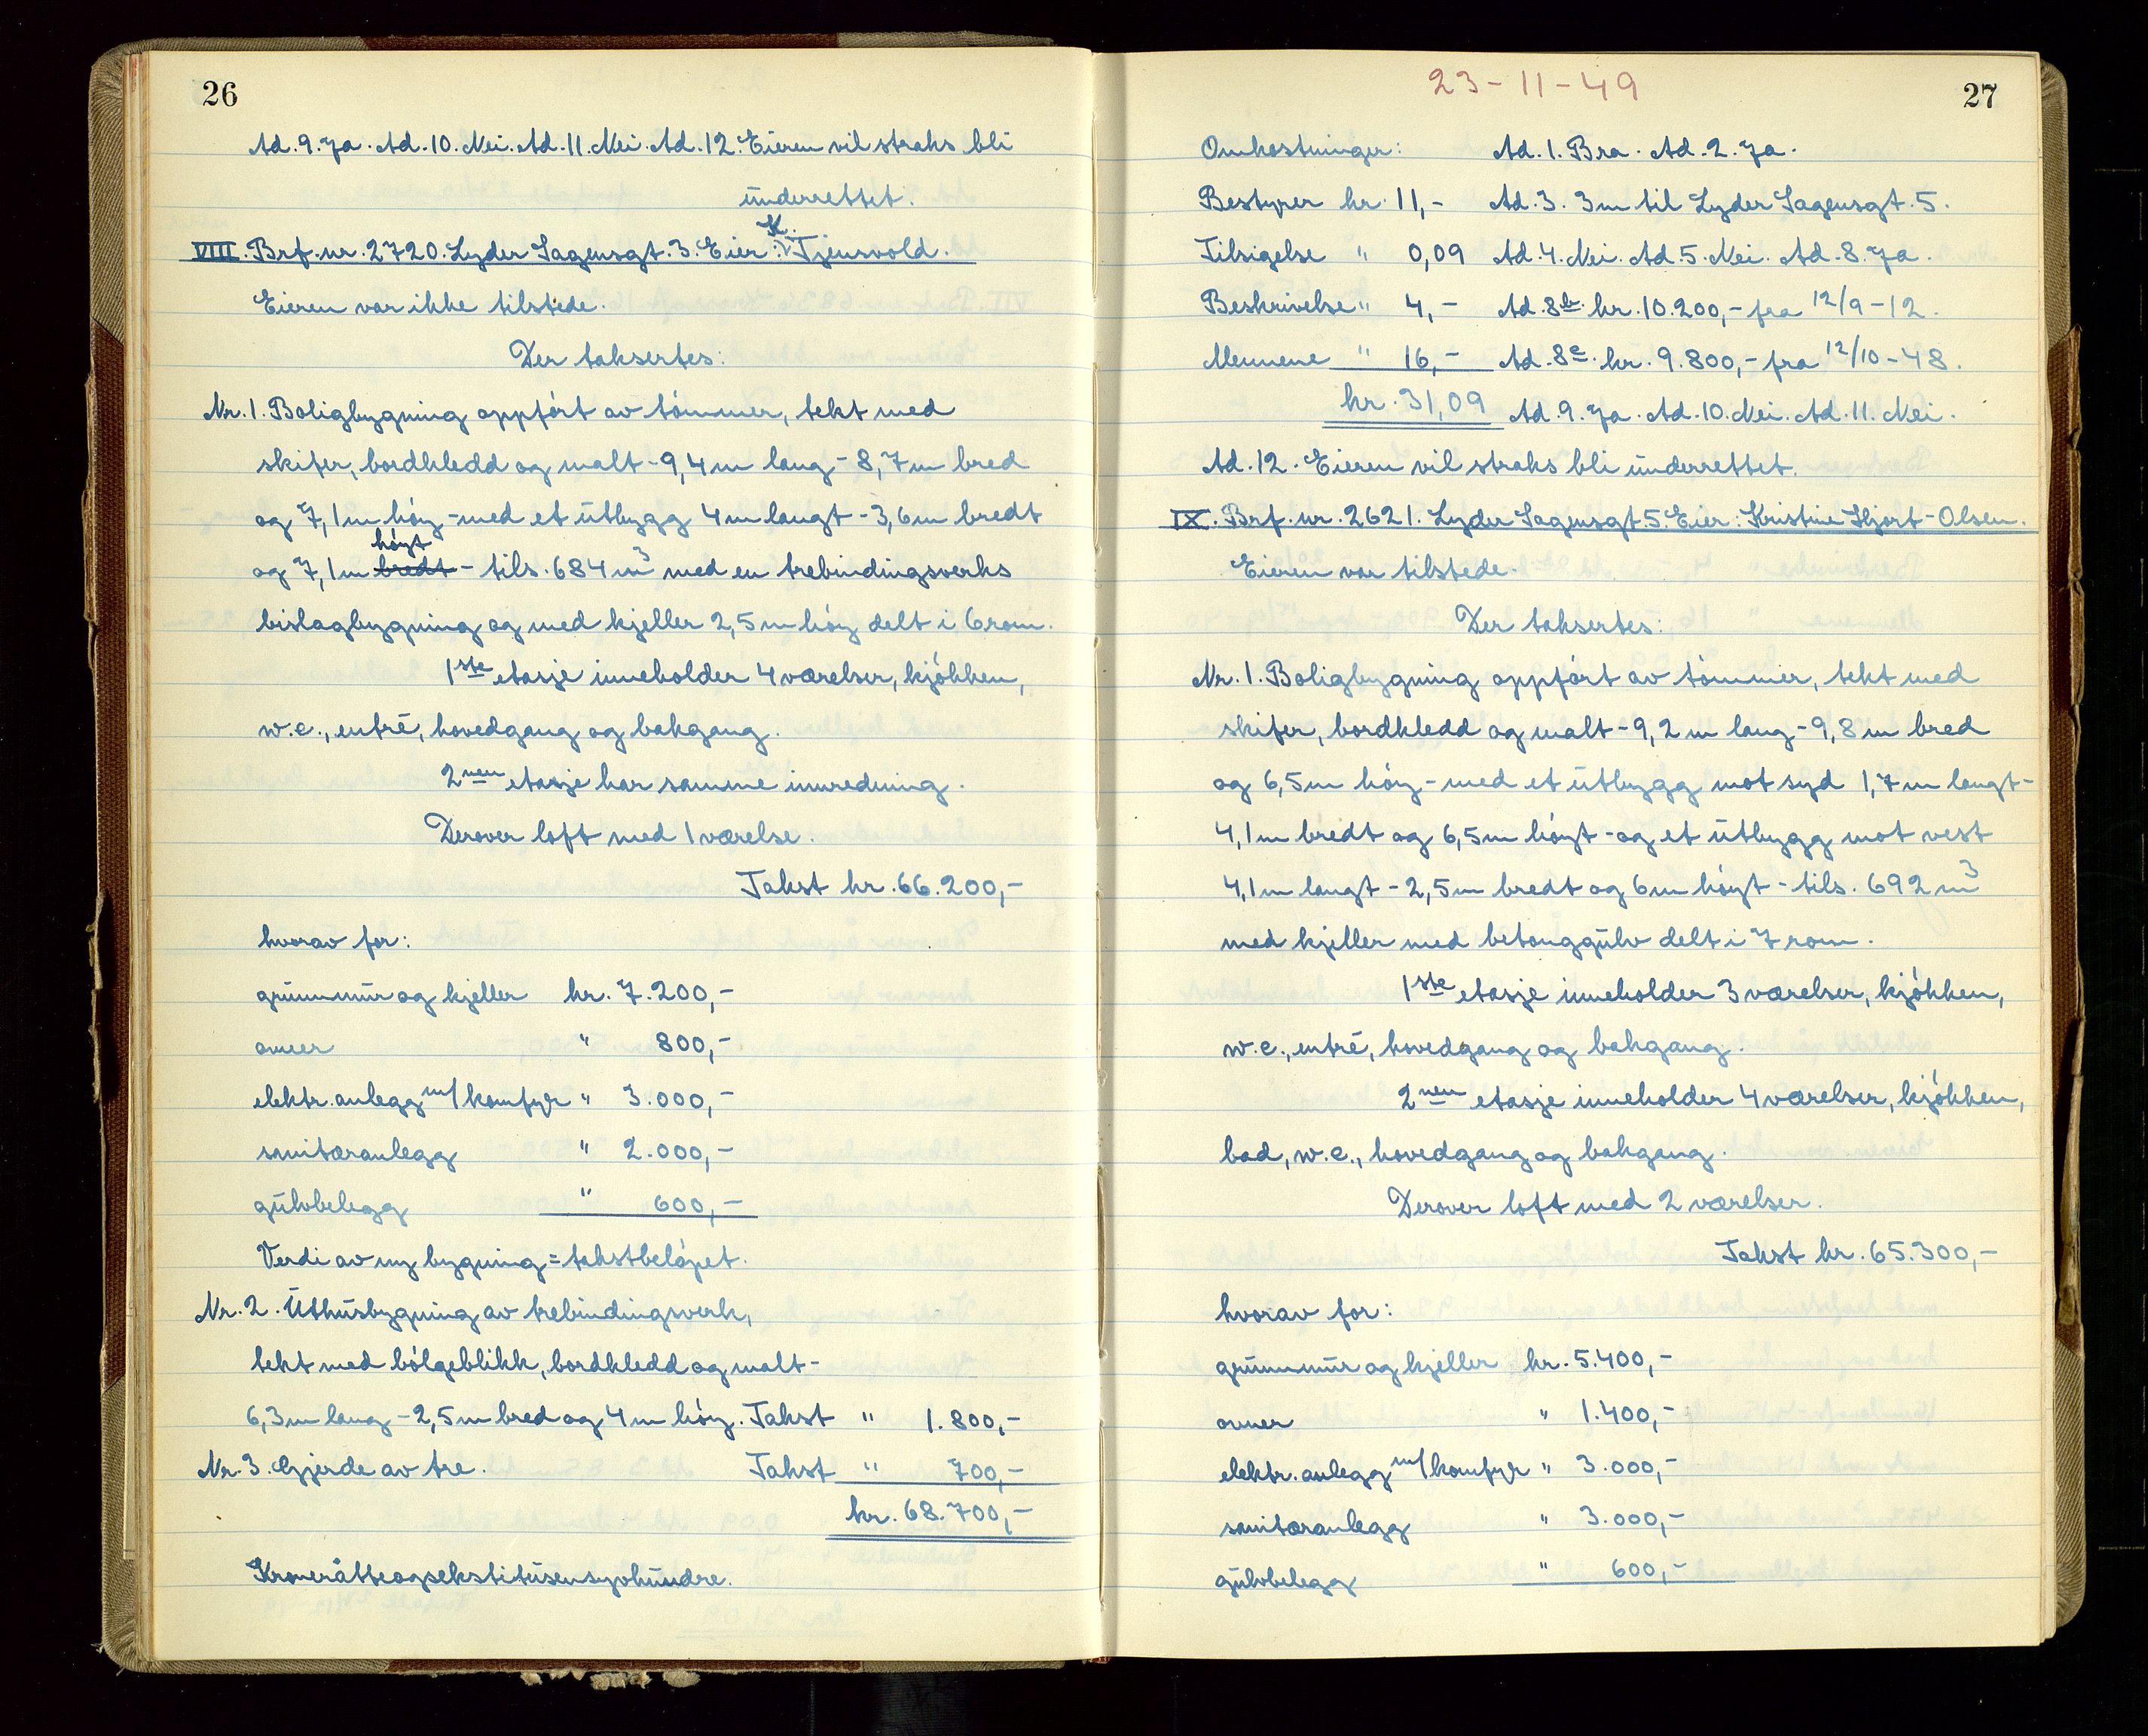 26
Ad. 9. Ja. Ad. 10. Nei. Ad. 11. Nei. Ad. 12. Eieren vil straks bli
underrettet.
VIII. Brf. nr. 2720. Lyder Sagensgt. 3. Eier: K. Tjensvold.
Eieren var ikke tilstede.
Der taksertes:
Nr. 1. Boligbygning oppført av tømmer, tekt med
skifer, bordkledd og malt - 9,4 m lang - 8,7 m bred
og 7,1 m høy - med et utbygg 4 m langt - 3,6 m bredt
og 7,1 m bredt høyt - tils. 684 m³ med en trebindingsverks
bislagbygning og med kjeller 2,5 m høy delt i 6 rom.
1ste etasje inneholder 4 værelser, kjøkken,
w.c., entré, hovedgang og bakgang.
2nen etasje har samme innredning.
Derover loft med 1 værelse.
Takst kr. 66.200,-
hvorav for:
grunnmur og kjeller kr. 7.200,-
ovner " 800,-
elektr. anlegg m/komfyr " 3.000,-
sanitæranlegg " 2.000,-
gulvbelegg " 600,-
Verdi av ny bygning = takstbeløpet.
Nr. 2. Uthusbygning av trebindingsverk,
tekt med bølgeblikk, bordkledd og malt -
6,3 m lang - 2,5 m bred og 4 m høy. Takst " 1.800,-
Nr. 3. Gjerde av tre. Takst " 700,-
kr. 68.700,-
Kroneråtteogsekstitusensyvhundre.
23-11-49
27
Omkostninger: Ad. 1. Bra. Ad. 2. Ja.
Bestyrer kr. 11,- Ad. 3. 3 m til Lyder Sagensgt. 5.
Tilsigelse " 0,09 Ad. 4. Nei. Ad. 5. Nei. Ad. 8. Ja.
Beskrivelse " 4,- Ad. 8b. kr. 10.200,- fra 12/9-12.
Mennene " 16,- Ad. 8c. kr. 9.800,- fra 12/10-48.
kr. 31,09 Ad. 9. Ja. Ad. 10. Nei. Ad. 11. Nei.
Ad. 12. Eieren vil straks bli underrettet.
IX. Brf. nr. 2621. Lyder Sagensgt. 5 Eier: Kristine Hjort-Olsen.
Eieren var tilstede.
Der taksertes:
Nr. 1. Boligbygning oppført av tømmer, tekt med
skifer, bordkledd og malt - 9,2 m lang - 9,8 m bred
og 6,5 m høy - med et utbygg mot syd 1,7 m langt -
4,1 m bredt og 6,5 m høyt - og et utbygg mot vest
4,1 m langt - 2,5 m bredt og 6 m høyt - tils. 692 m³
med kjeller med betonggulv delt i 7 rom.
1ste etasje inneholder 3 værelser, kjøkken,
w.c., entré, hovedgang og bakgang.
2nen etasje inneholder 4 værelser, kjøkken,
bad, w.c., hovedgang og bakgang.
Derover loft med 2 værelser.
Takst kr. 65.300,-
hvorav for:
grunnmur og kjeller kr. 5.400,-
ovner " 1.400,-
elektr. anlegg m/komfyr " 3.000,-
sanitæranlegg " 3.000,-
gulvbelegg " 600,-